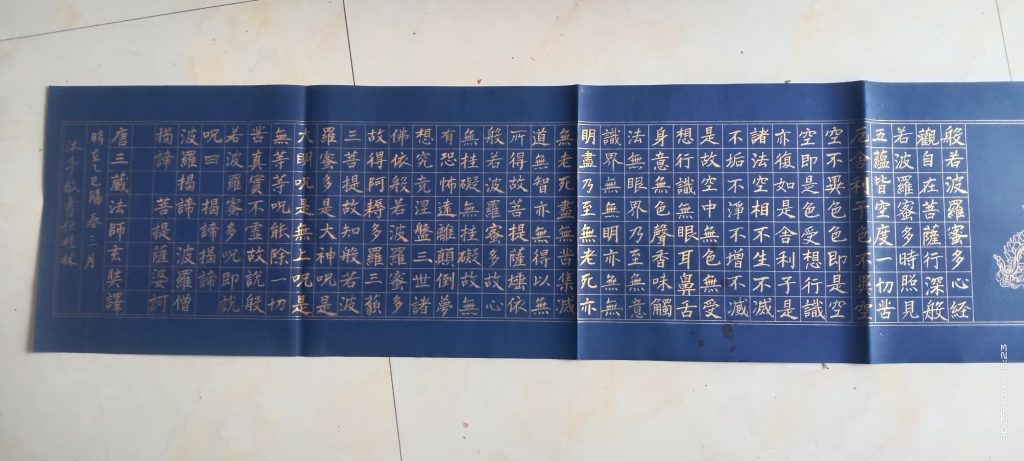 般若波羅蜜多心経
觀自在菩薩行深般
若波羅蜜多時照見
五蘊皆空度一切苦
厄舍利子色不異空
空不異色色即是空
空即是色受想行識
亦復如是舍利子是
諸法空相不生不滅
不垢不淨不增不減
是故空中無色無受
想行識無眼耳鼻舌
身意無色聲香味觸
法無眼界乃至無意
識界亦無無明亦無
明盡乃至無老死亦
無老死盡無苦集滅
道無智亦無得以無
所得故菩提薩埵依
般若波羅蜜多故心
無桂礙無桂礙故無
有恐怖遠離顛倒夢
想究竟涅盤三世諸
佛依般若波羅蜜多
故得阿耨多羅三藐
三菩提故知般若波
羅蜜多是大神呪是
大明呪是無上呪是
無等等呪能除一切
苦真實不虛故說般
若波羅蜜多呪即說
呪曰 揭諦揭諦
波羅揭諦 波羅僧
揭諦 菩提薩婆訶
唐三藏法師玄奘譯
時乙巳陽春三月
沐手敬書